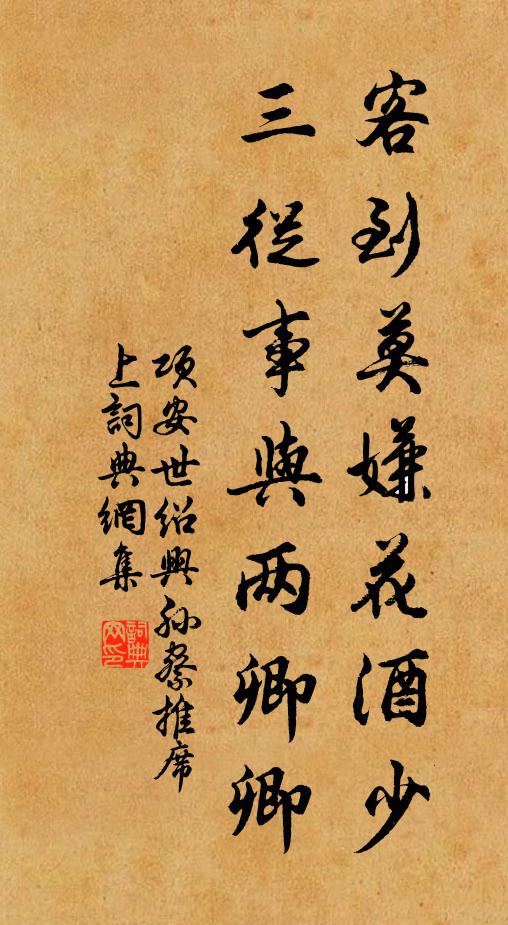 客到莫嫌花酒少
三從事與两卿卿
項安世紹興孫察推席
上詞典網集
詞典
网印